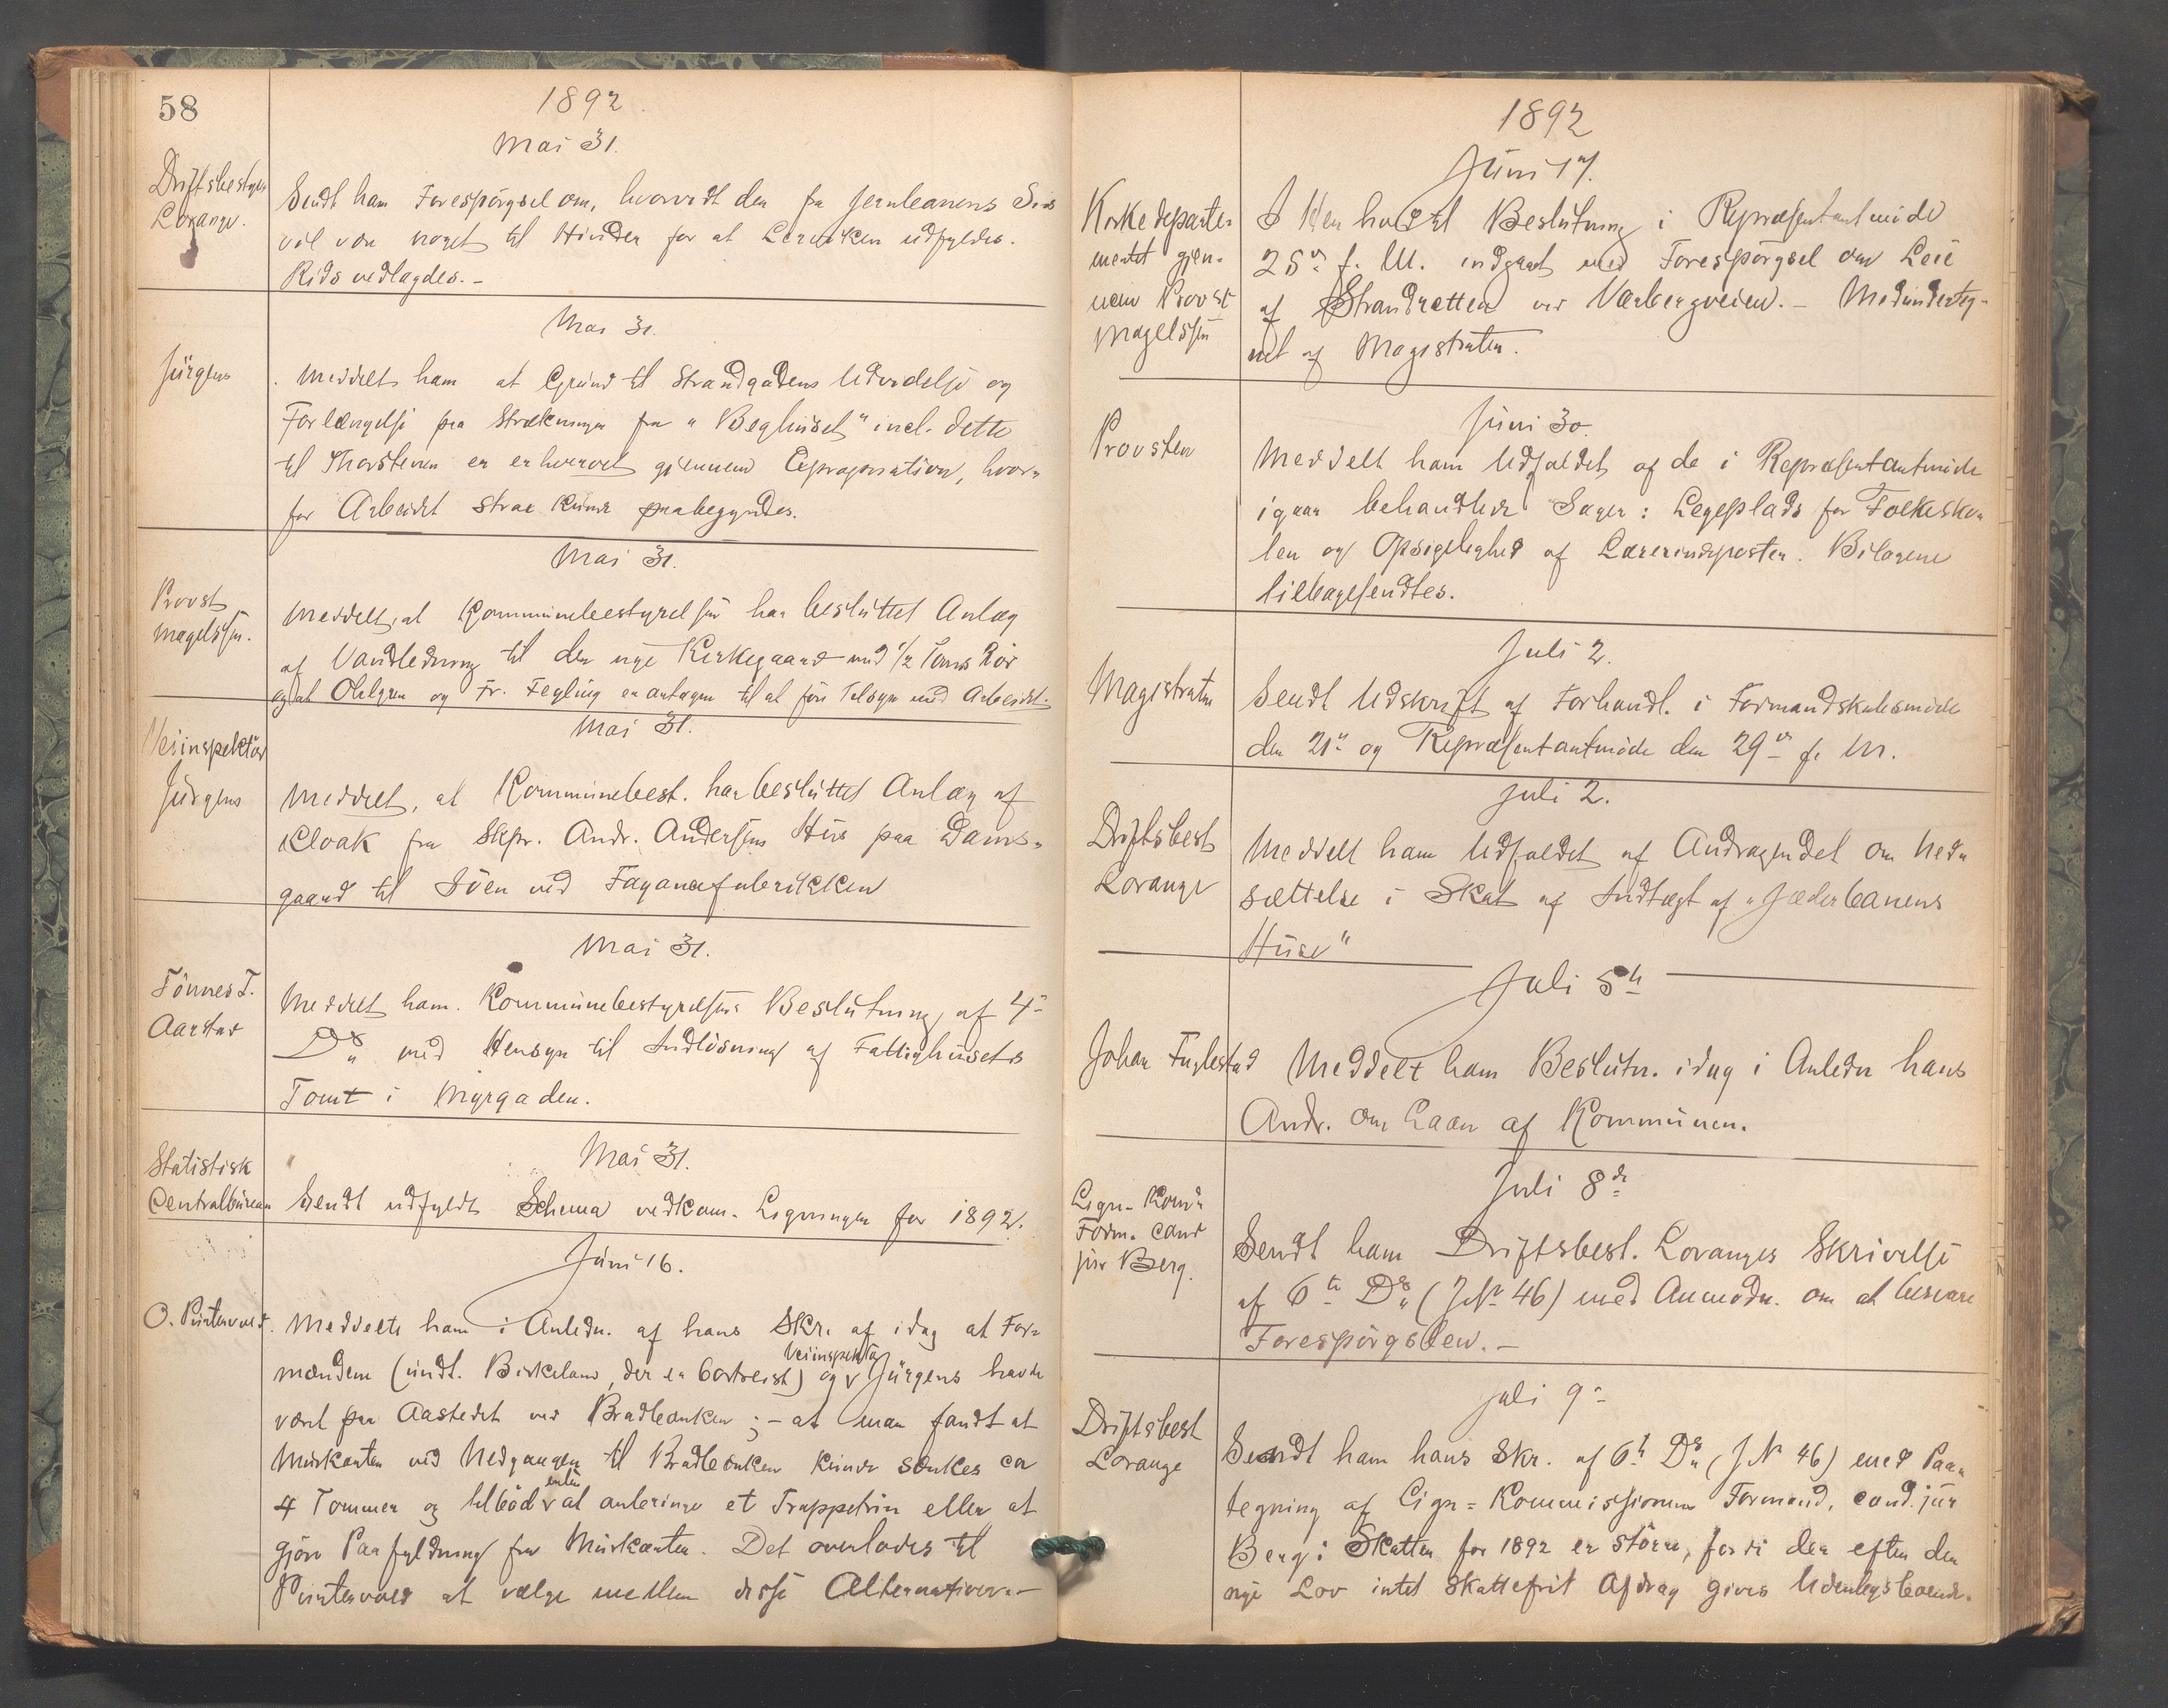 58
1892
Mai 31.
Driftsbestyrer
Lorange.
Sendt ham Forespörgsel om, hvorvidt der fra Jernbanens Side
vil være noget til Hinder for at Lerviken udfyldes.
Rids vedlagdes.-
Mai 31.
Jürgens
Meddelt ham at Grund til Strandgadens Udvidelse og
Forlængelse paa Strækningen fra "Beghuset" incl. dette
til Thorsteinen er erhvervet gjennem Expropriation, hvor-
for Arbeidet strax kunde paabegyndes.
Mai 31.
Provst
Magelssen.
Meddelt, at Kommunebestyrelsen har besluttet Anlæg
af Vandledning til den nye Kirkegaard med 1/2 Toms Rör
og at Ohlgren og Fr. Feyling er antagen til at före Tilsyn med Arbeidet.
Mai 31.
Veiinspektör
Jürgens
Meddelt, at Kommunebest. har besluttet Anlæg af
Kloak fra Skpr. Andr. Andersens Hus paa Dams-
gaard til Söen ved Fayancefabrikken
Mai 31.
Tönnes T.
Aarstad
Meddelt ham Kommunebestyrelsens Beslutning af 4-
Ds. med Hensyn til Indlösning af Fattighusets
Tomt i Myrgaden.
Mai 31.
Statistisk
Centralbureau
Sendt udfyldt Schema vedkom. Ligningen for 1892.
Juni 16.
O. Puntervold.
Meddelte ham i Anledn. af hans Skr. af idag at For-
mændene (undt. Birkeland, der er bortreist) og Veiinspektör Jürgens havde
været paa Aastedet ved Bradbænken; - at man fandt at
Murkanten ved Nedgangen til Bradbænken kunde sænkes ca
4 Tommer og tilböd enten at anbringe et Trappetrin eller at
gjöre Paafyldning fra Murkanten. Det overlodes til
Puntervold at vælge mellem disse Alternativer.-
1892
Juni 17.
Kirkedeparte-
mentet gjen-
nem Provst
Magelssen
I Henhold til Beslutning i Repræsentantmöde
25de f. M. indgaaet med Forespörgsel om Leie
af Strandretten ved Varbergveien. - Medunderteg-
net af Magistraten.
Juni 30.
Provsten
Meddelt ham Udfaldet af de i Repræsentantmöde
igaar behandlede Sager: Legeplads for Folkesko-
len og Opsigelighed af Lærerindeposten. Bilagene
tilbagesendtes.
Juli 2.
Magistraten
Sendt Udskrift af Forhandl. i Formandskabsmöde
den 21de og Repræsentantmöde den 29de f. M.
Juli 2.
Driftsbest
Lorange
Meddelt ham Udfaldet af Andragendet om Ned-
sættelse i Skat af Indtægt af "Jæderbanens
Huse"
Juli 5te
Johan Fuglestad
Meddelt ham Beslutn. idag i Anledn hans
Andr. om Laan af Kommunen.
Juli 8de
Lign-Kom-
Form. cand
jur Berg.
Sendt ham Driftsbest. Loranges Skrivelse
af 6te Ds. (J№ 46) med Anmodn. om at besvare
Forespörgslen.-
Juli 9-
Driftsbest
Lorange
Sendt ham hans Skr. af 6te Ds. (J№ 46) med Paa-
tegning af Lign-Kommissionens Formand, cand. jur
Berg: Skatten for 1892 er större, fordi der efter den
nye Lov intet skattefrit Afdrag gives Udenbysboende.